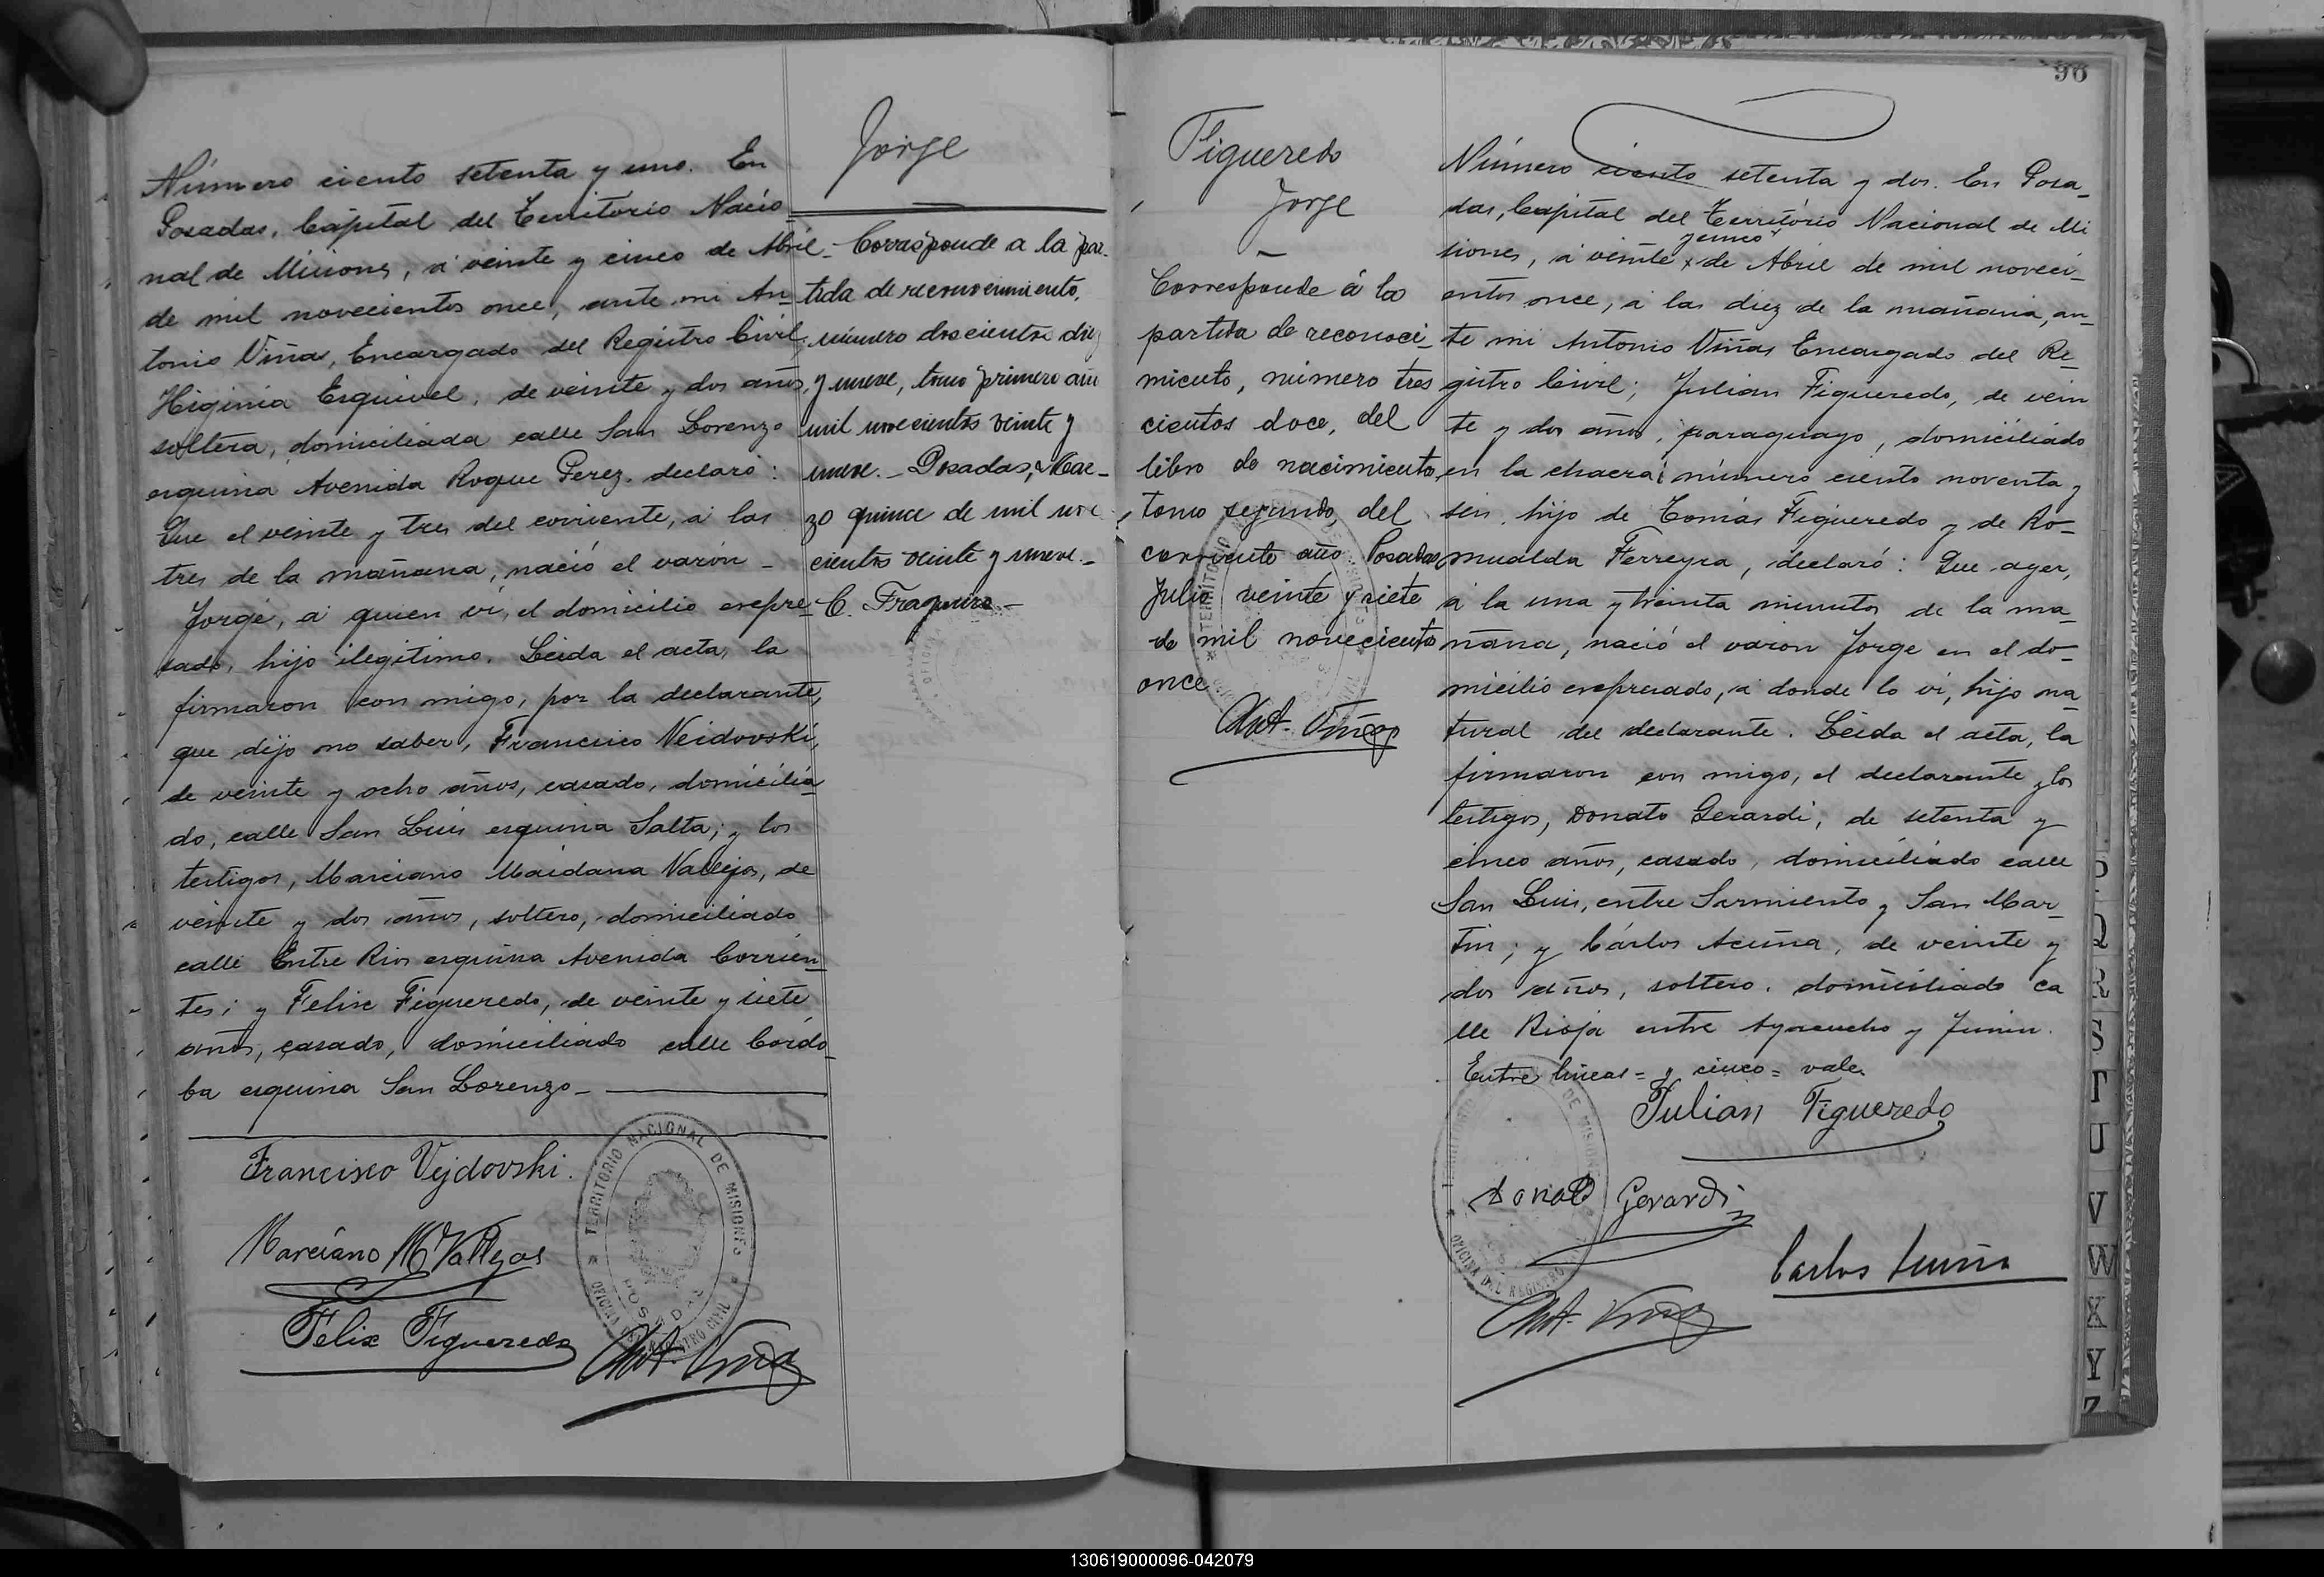 Número ciento setenta y uno. En
Posadas, Capital del Territorio Nacio_
nal de Misiones, á veinte y cinco de Abril
de mil novecientos once, ante mi An_
tonio Viñas, Encargado del Registro Civil,
Higinia Esquivel, de veinte y dos años,
soltera, domiciliada calle San Lorenzo
esquina Avenida Roque Perez, declaró:
Que el veinte y tres del corriente, á las
tres de la mañana, nació el varón _
Jorge, á quien ví, el domicilio expre_
sado, hijo ilegitimo. Leida el acta, la
firmaron con migo, por la declarante,
que dijo no saber, Francisco Veidovski,
de veinte y ocho años, casado, domicilia_
do, calle San Luis esquina Salta; y los
testigos, Marciano Maidana Vallejos, de
veinte y dos años, soltero, domiciliado
calle Entre Rios esquina Avenida Corrien_
tes; y Felix Figueredo, de veinte y siete
años, casado, domiciliado calle Córdo_
ba esquina San Lorenzo_
Francisco Vejdovski.
Marciano M Vallejos
Felix Figueredo
Ant. Viñas
TERRITORIO NACIONAL DE MISIONES
OFICINA DEL REGISTRO CIVIL
POSADAS
Jorge
_ Corresponde a la par_
tida de reconocimiento,
número doscientos diez
y nueve, tomo primero año
mil novecientos veinte y
nueve. _ Posadas, Mar_
zo quince de mil nove
cientos veinte y nueve._
C. Fragueiro_
96
Figueredo
Jorge
Corresponde á la
partida de reconoci_
miento, número tres
cientos doce, del
libro de nacimiento,
tomo segundo, del
corriente año Posadas,
Julio veinte y siete
de mil novecientos
once
Ant. Viñas
Número ciento setenta y dos. En Posa_
das, Capital del Território Nacional de Mi
y cinco
siones, á veinte x de Abril de mil noveci_
entos once, á las diez de la mañana, an_
te mi Antonio Viñas Encargado del Re_
gistro Civil; Julian Figueredo, de vein
te y dos años, paraguayo, domiciliado
en la chacra número ciento noventa y
seis, hijo de Tomás Figueredo y de Ro_
mualda Ferreyra, declaró: Que ayer,
á la una y treinta minutos de la ma_
ñana, nació el varon Jorge en el do_
micilio expresado, á donde lo ví, hijo na_
tural del declarante. Leida el acta, la
firmaron con migo, el declarante y los
testigos, Donato Gerardi, de setenta y
cinco años, casado, domiciliado calle
San Luis, entre Sarmiento y San Mar_
tin; y Cárlos Acuña, de veinte y
dos años, soltero, domiciliado ca
lle Rioja entre Ayacucho y Junin.
Entre lineas = y cinco = vale.
Julian Figueredo
Donato Gerardi
Carlos Acuña
Ant. Viñas
P
Q
R
S
T
U
V
W
X
Y
Z
130619000096-042079